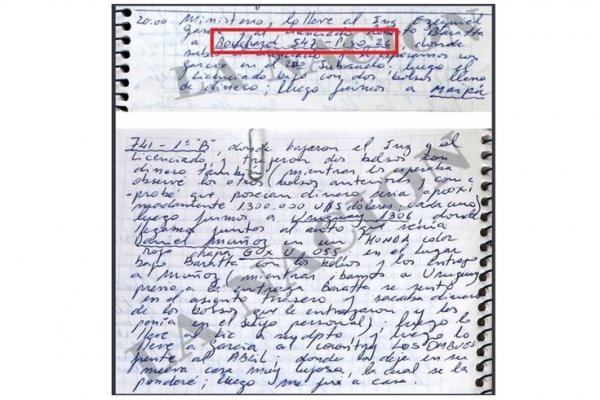 20:00 Ministerio lo lleve al Ing Ezequiel
Garcia y al Licenciado Roberto Baratta
a Bouchard 547 - Piso 26 donde
subio el Licenciado y lo esperamos con
Garcia en el 2do Subsuelo, luego el
Licenciado bajo con dos bolsos llenos
de dinero; luego fuimos a Maipú
741 - 1º "B", donde bajaron el Ing y el
Licenciado, y trajeron dos bolsos con
dinero también (mientras los esperaba
observe los otros bolsos anteriores y com-
probe que poseian dinero diria aproxi
madamente 1300.000 U$S dólares cada uno)
luego fuimos a Uruguay 1306 donde
llegamos juntos al auto que venia
Daniel Muñoz en un HONDA color
rojo chapa GOX U 055 en el lugar
bajo Baratta con los bolsos y los entrego
a Muñoz (mientras ibamos a Uruguay
previo a la entrega Baratta se sento
en el asiento trasero y sacaba dinero
de los bolsos que le entregaron y los
ponia en el suyo personal); luego lo
lleve al Lic a su dpto y luego lo
lleve a Garcia al country LOS OMBUES
frente al ABRIL; donde lo deje en su
nueva casa muy lujosa, la cual se la
ponderé; luego me fui a casa.
LA NACION
LA NACION
LA NACION